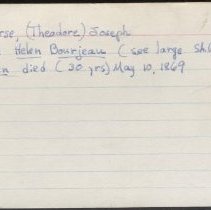 rse, (Theodore,) Joseph
Helen Bourjeau (see large
n died (30 yrs) May 10, 1869